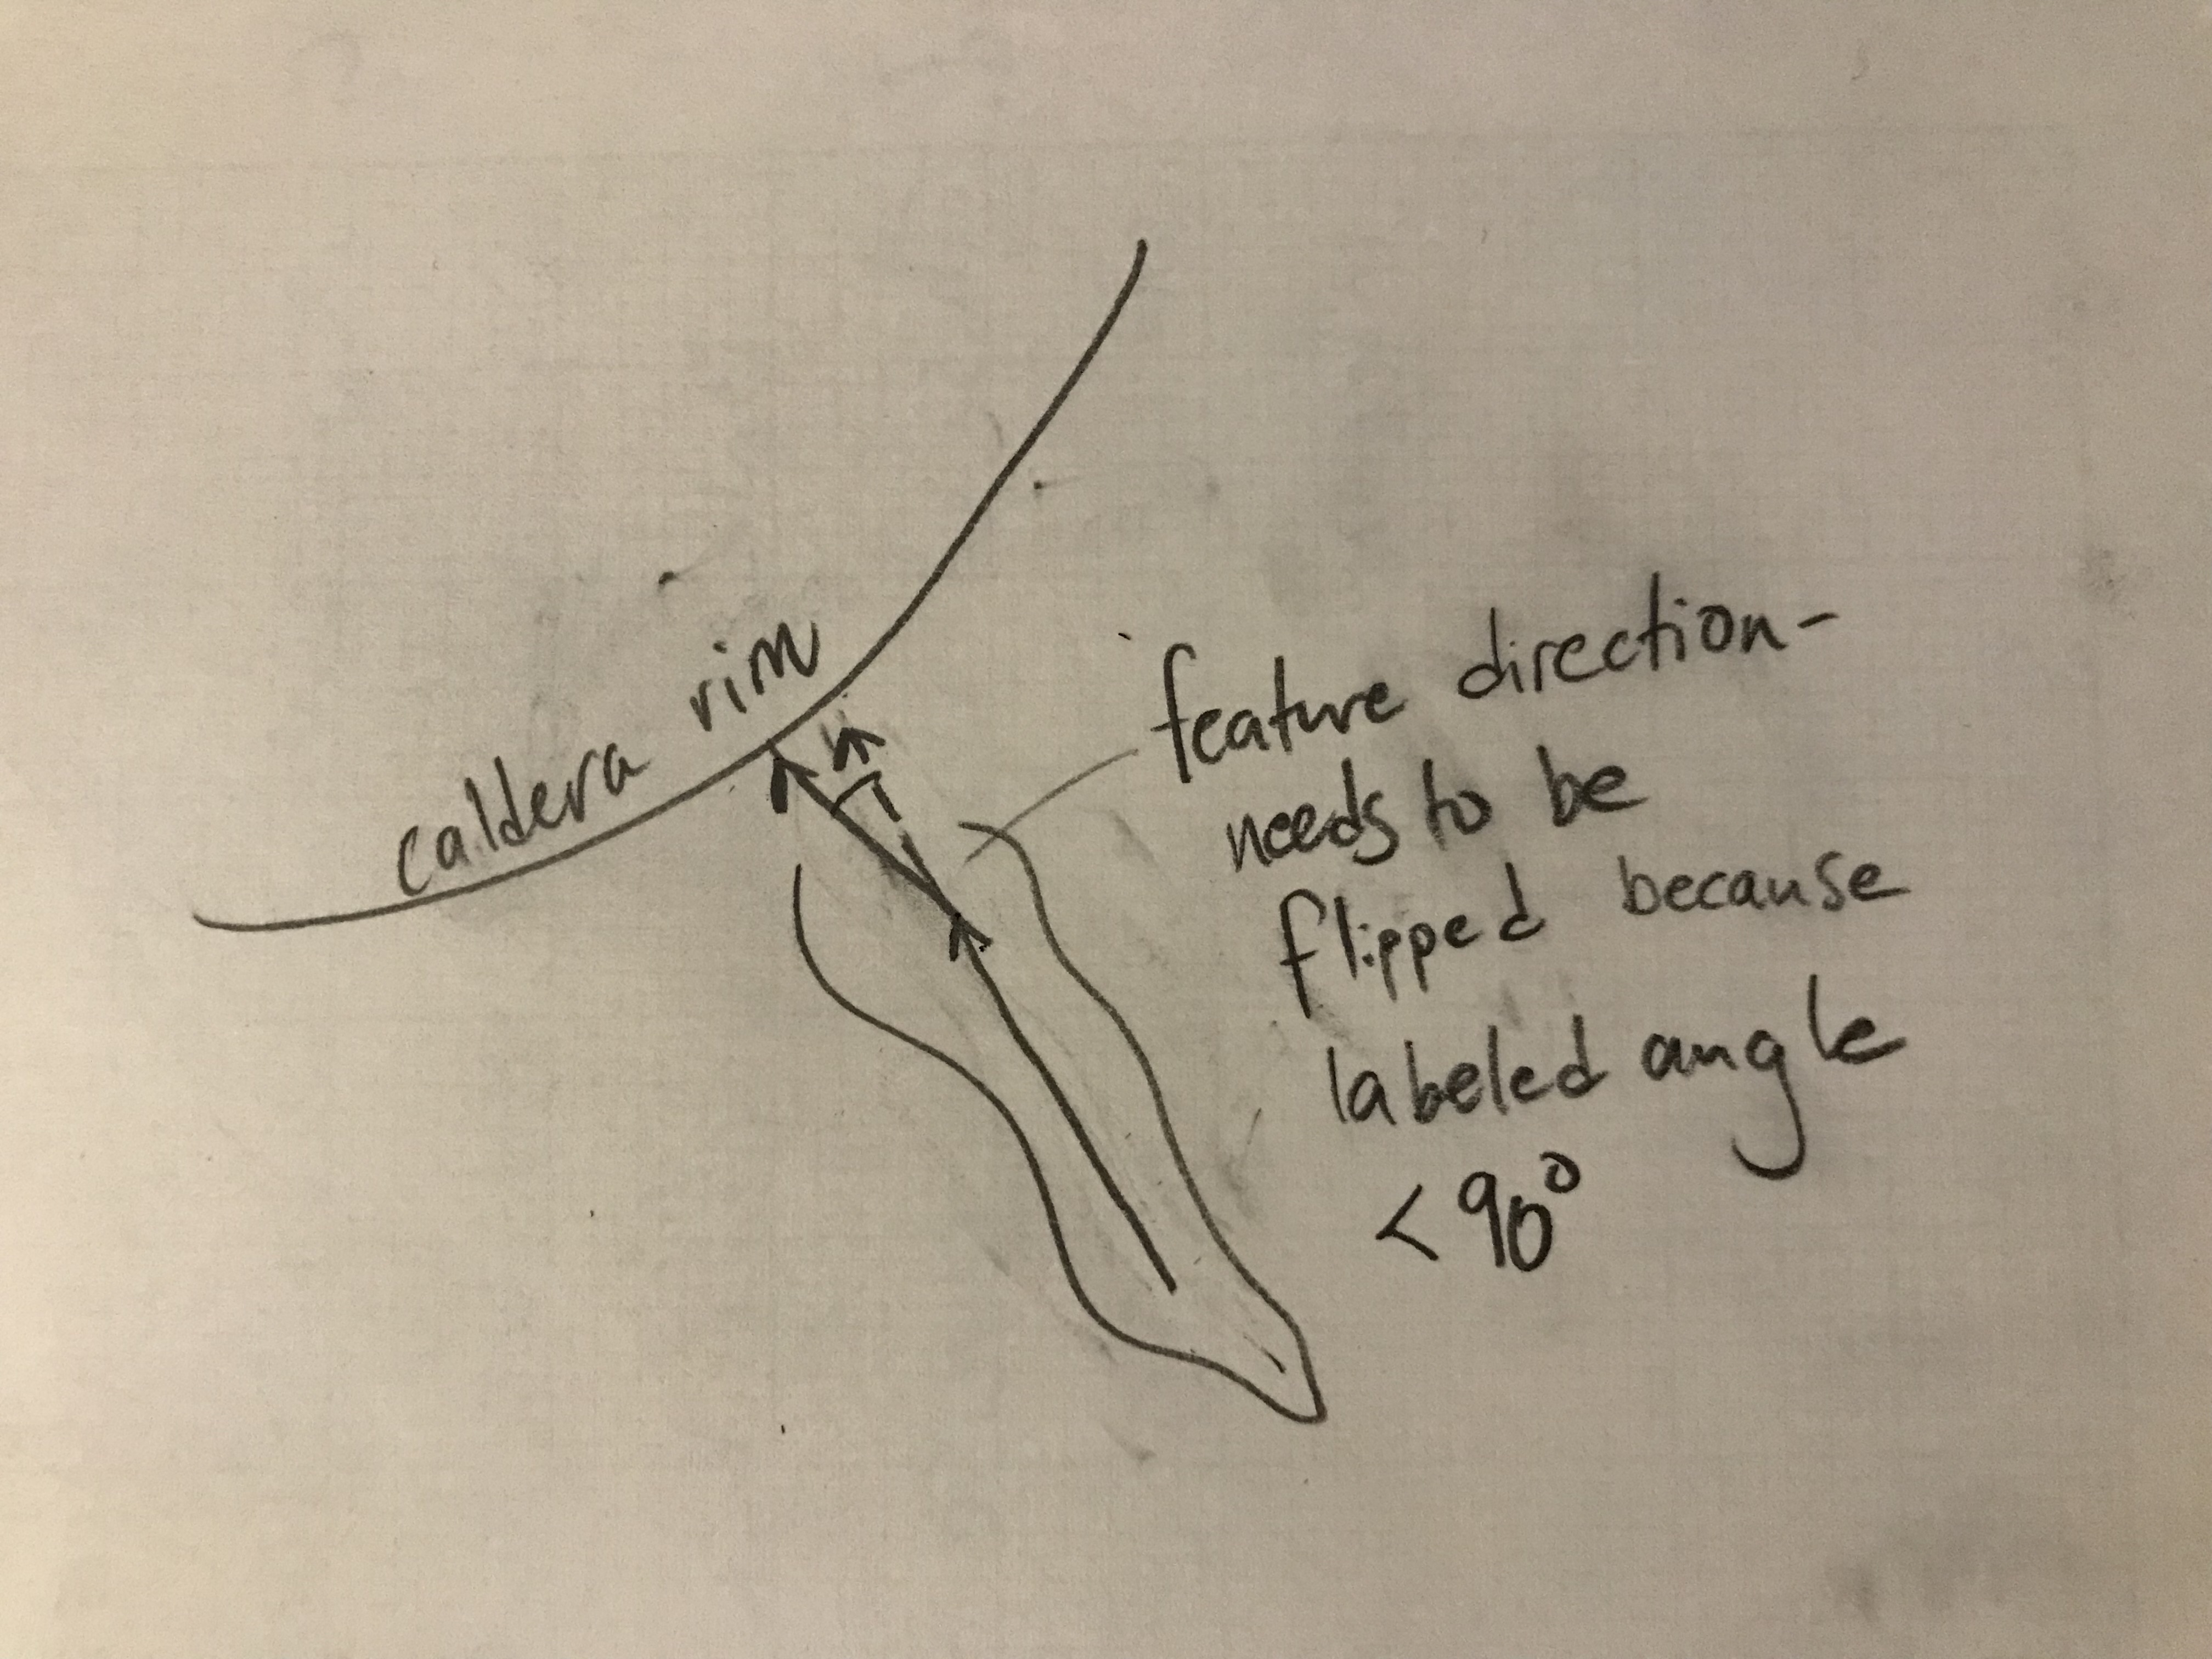 caldera rim
feature direction-
needs to be
flipped because
labeled angle
< 90°